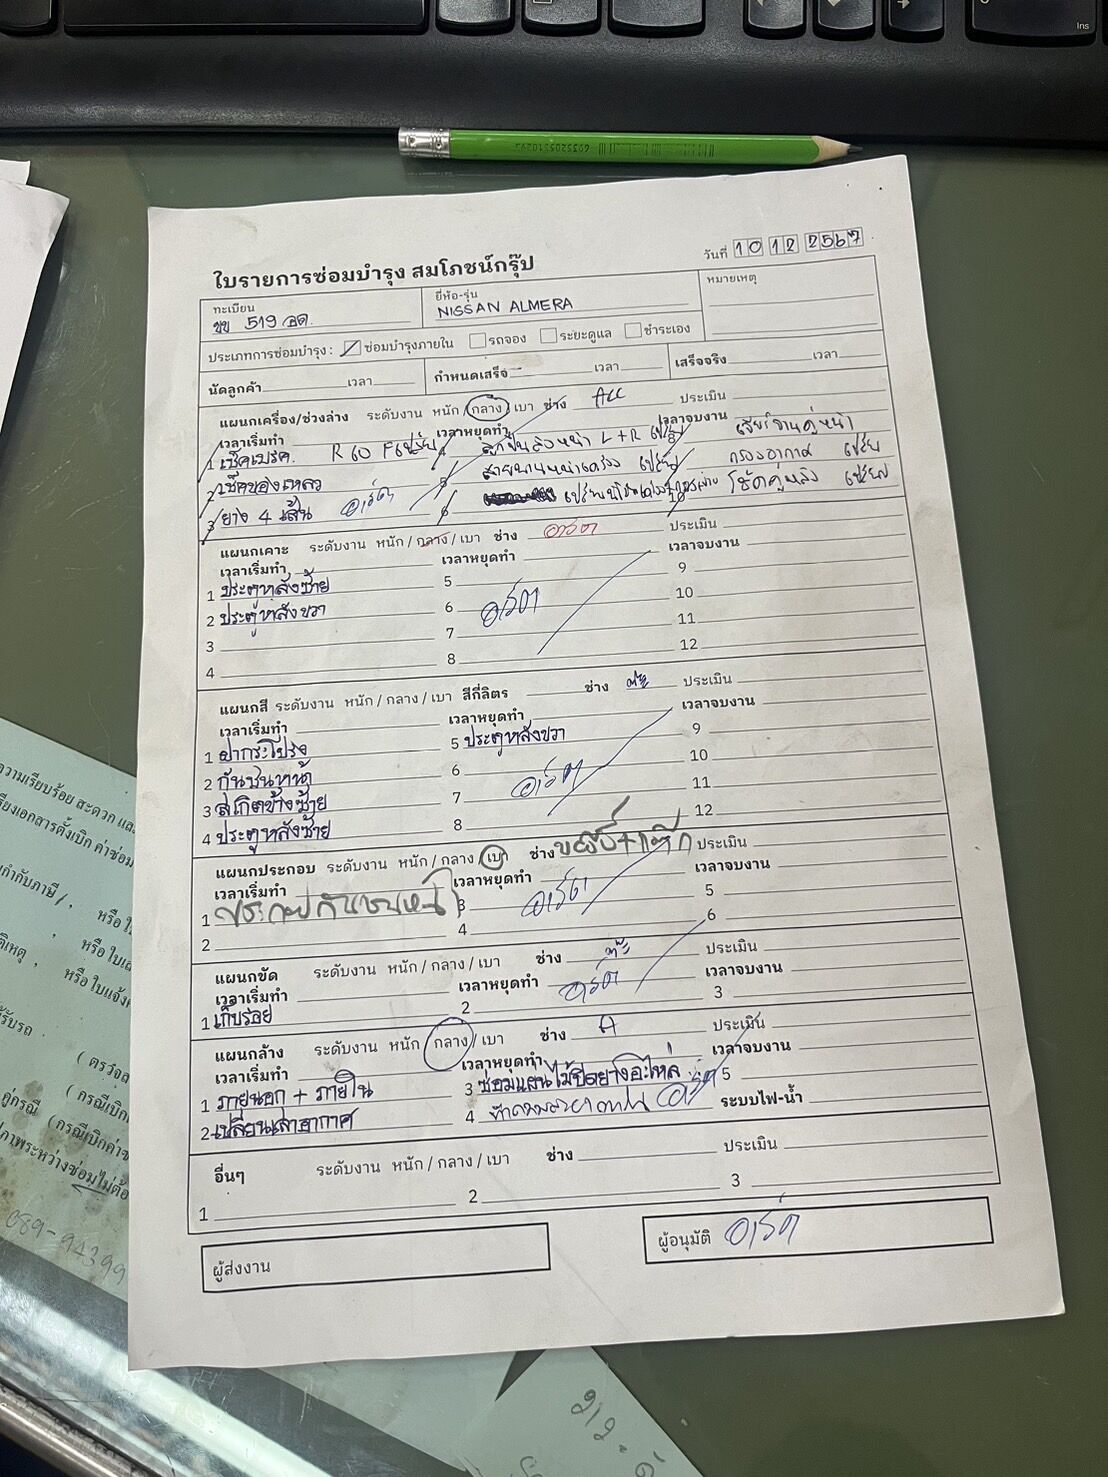 Ins
6935205510293
ใบรายการซ่อมบำรุง สมโภชน์กรุ๊ป
วันที่ 10 12 2567
ทะเบียน
ขข 519 อด.
ยี่ห้อ-รุ่น
NISSAN ALMERA
หมายเหตุ
ประเภทการซ่อมบำรุง : ซ่อมบำรุงภายใน รถจอง ระยะดูแล ชำระเอง
นัดลูกค้า เวลา กำหนดเสร็จ เวลา เสร็จจริง เวลา
แผนกเครื่อง/ช่วงล่าง ระดับงาน หนัก / กลาง / เบา ช่าง ประเมิน
เวลาเริ่มทำ เวลาหยุดทำ เวลาจบงาน
1 เช็คเบรค. R 60 F เปลี่ยน
4 L + R เปลี่ยน
2 เช็คของเหลว
5 เปลี่ยน
กรองอากาศ เปลี่ยน
3 ยาง 4 เส้น อาร์ต
6
10 โช๊คคู่หลัง เปลี่ยน
แผนกเคาะ ระดับงาน หนัก / กลาง / เบา ช่าง อาร์ต ประเมิน
เวลาเริ่มทำ เวลาหยุดทำ เวลาจบงาน
1 ประตูหลังซ้าย 5 9
2 ประตูหลังขวา 6 อาร์ต 10
3 7 11
4 8 12
แผนกสี ระดับงาน หนัก / กลาง / เบา สีกี่ลิตร ช่าง ประเมิน
เวลาเริ่มทำ เวลาหยุดทำ เวลาจบงาน
1 ฝากระโปรง 5 ประตูหลังขวา 9
2 กันชนหน้า 6 10
3 สเกิตข้างซ้าย 7 อาร์ต 11
4 ประตูหลังซ้าย 8 12
แผนกประกอบ ระดับงาน หนัก / กลาง / เบา ช่าง ประเมิน
เวลาเริ่มทำ เวลาหยุดทำ เวลาจบงาน
1 ประกอบกันชนหน้า 3 อาร์ต 5
2 4 6
แผนกขัด ระดับงาน หนัก / กลาง / เบา ช่าง ประเมิน
เวลาเริ่มทำ เวลาหยุดทำ อาร์ต เวลาจบงาน
1 เก็บรอย 2 3
แผนกล้าง ระดับงาน หนัก / กลาง / เบา ช่าง A ประเมิน
เวลาเริ่มทำ เวลาหยุดทำ เวลาจบงาน
1 ภายนอก + ภายใน 3 ซ่อมแผนไม้ปิดยางอะไหล่ 5
2 เปลี่ยนเสาอากาศ 4 อาร์ต ระบบไฟ-น้ำ
อื่นๆ ระดับงาน หนัก / กลาง / เบา ช่าง ประเมิน
1 2 3
ผู้ส่งงาน
ผู้อนุมัติ อาร์ต
ความเรียบร้อย สะดวก และ
เอกสารตั้งเบิก ค่าซ่อม
กำกับภาษี / , หรือ
, หรือ
เหตุ , หรือ ใบแจ้ง
รับรถ
( ตรวจส
( กรณีเบิก
คู่กรณี (กรณีเบิกค่าซ
ภาพระหว่างซ่อมไม่ต้อ
089-94399
212.